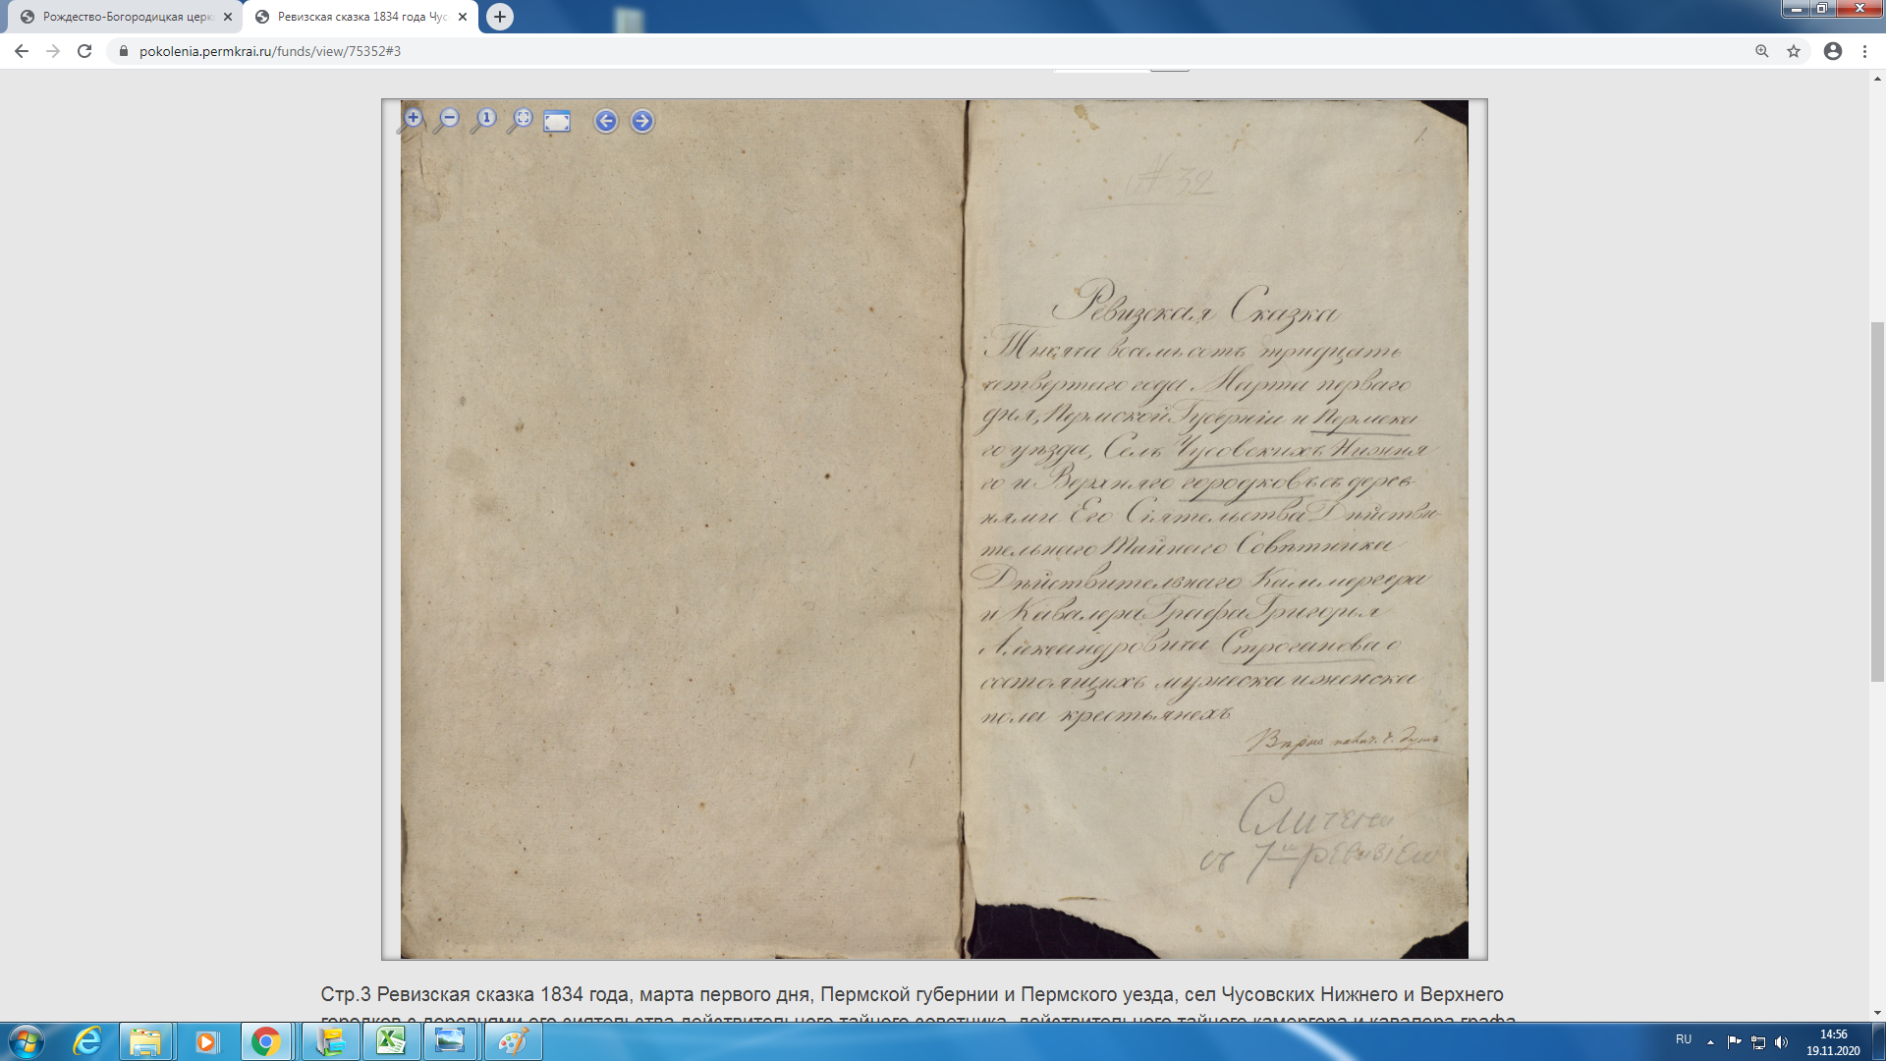 Рождество-Богородицкая церк
Ревизская сказка 1834 года Чус
pokolenia.permkrai.ru/funds/view/75352#3
1
1.
№ 32
Ревизская Сказка
Тысяча восемьсотъ тридцать
четвертаго года Марта перваго
дня, Пермской Губерніи и Пермска
го уѣзда, Селъ Чусовскихъ Нижня
го и Верхняго городковъ съ дерев
нями Его Сіятельства Дѣйстви-
тельнаго Тайнаго Совѣтника
Дѣйствительнаго Каммергера
и Кавалера Графа Григорья
Александровича Строганова о
состоящихъ мужеска и женска
пола крестьянехъ
Вѣрно
Сличена
съ 7ю ревизіею
Стр.3 Ревизская сказка 1834 года, марта первого дня, Пермской губернии и Пермского уезда, сел Чусовских Нижнего и Верхнего
городков с деревнями его сиятельства действительного тайного советника, действительного тайного камергера и кавалера графа
RU
14:56
19.11.2020